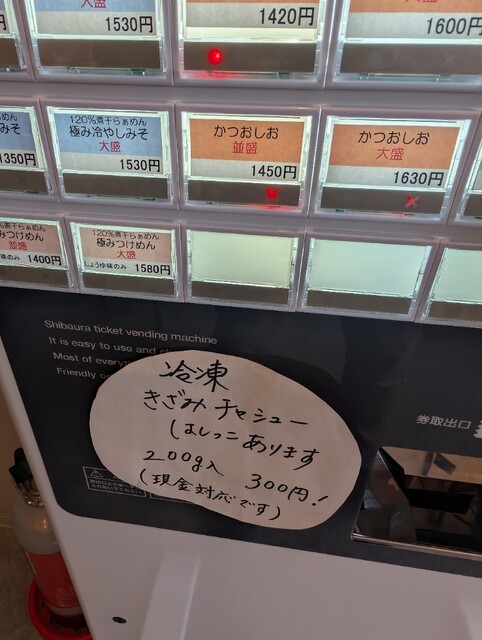 大盛
1530円
1420円
大盛
1600円
みそ
1350円
120%煮干らぁめん
極み冷やしみそ
大盛
1530円
かつおしお
並盛
1450円
かつおしお
大盛
1630円
らぁめん
みつけめん
並盛
味のみ 1400円
120%煮干らぁめん
極みつけめん
大盛
しょうゆ味のみ 1580円
Shibaura ticket vending machine
It is easy to use and
Most of every
Friendly
券取出口
冷凍
きざみチャシュー
はしっこあります
200g入 300円!
(現金対応です)